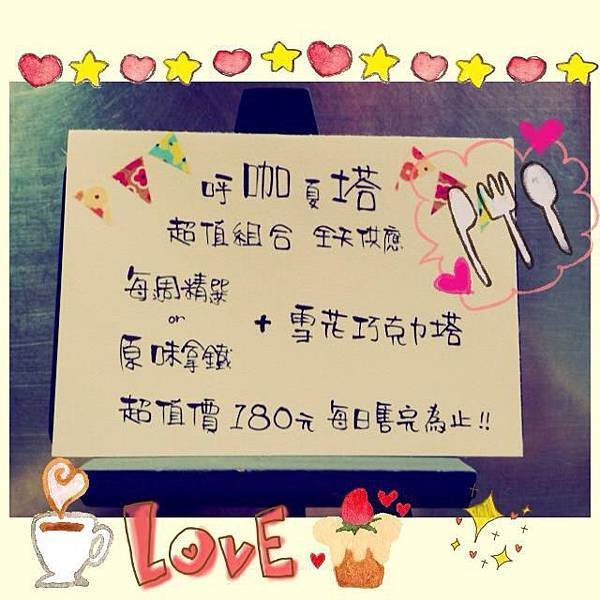 呼咖夏塔
超值組合 全天供應
每週精選
or
原味拿鐵
+ 雪花巧克力塔
超值價 180元 每日售完為止!!
LOVE